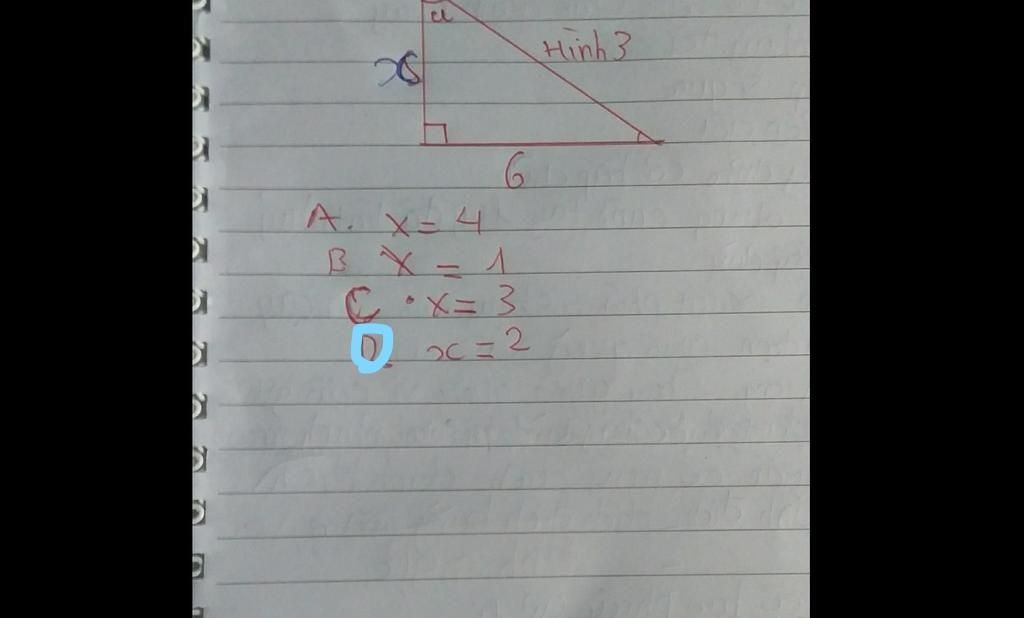 Hình 3
x
6
A. x = 4
B x = 1
C . x = 3
D. x = 2